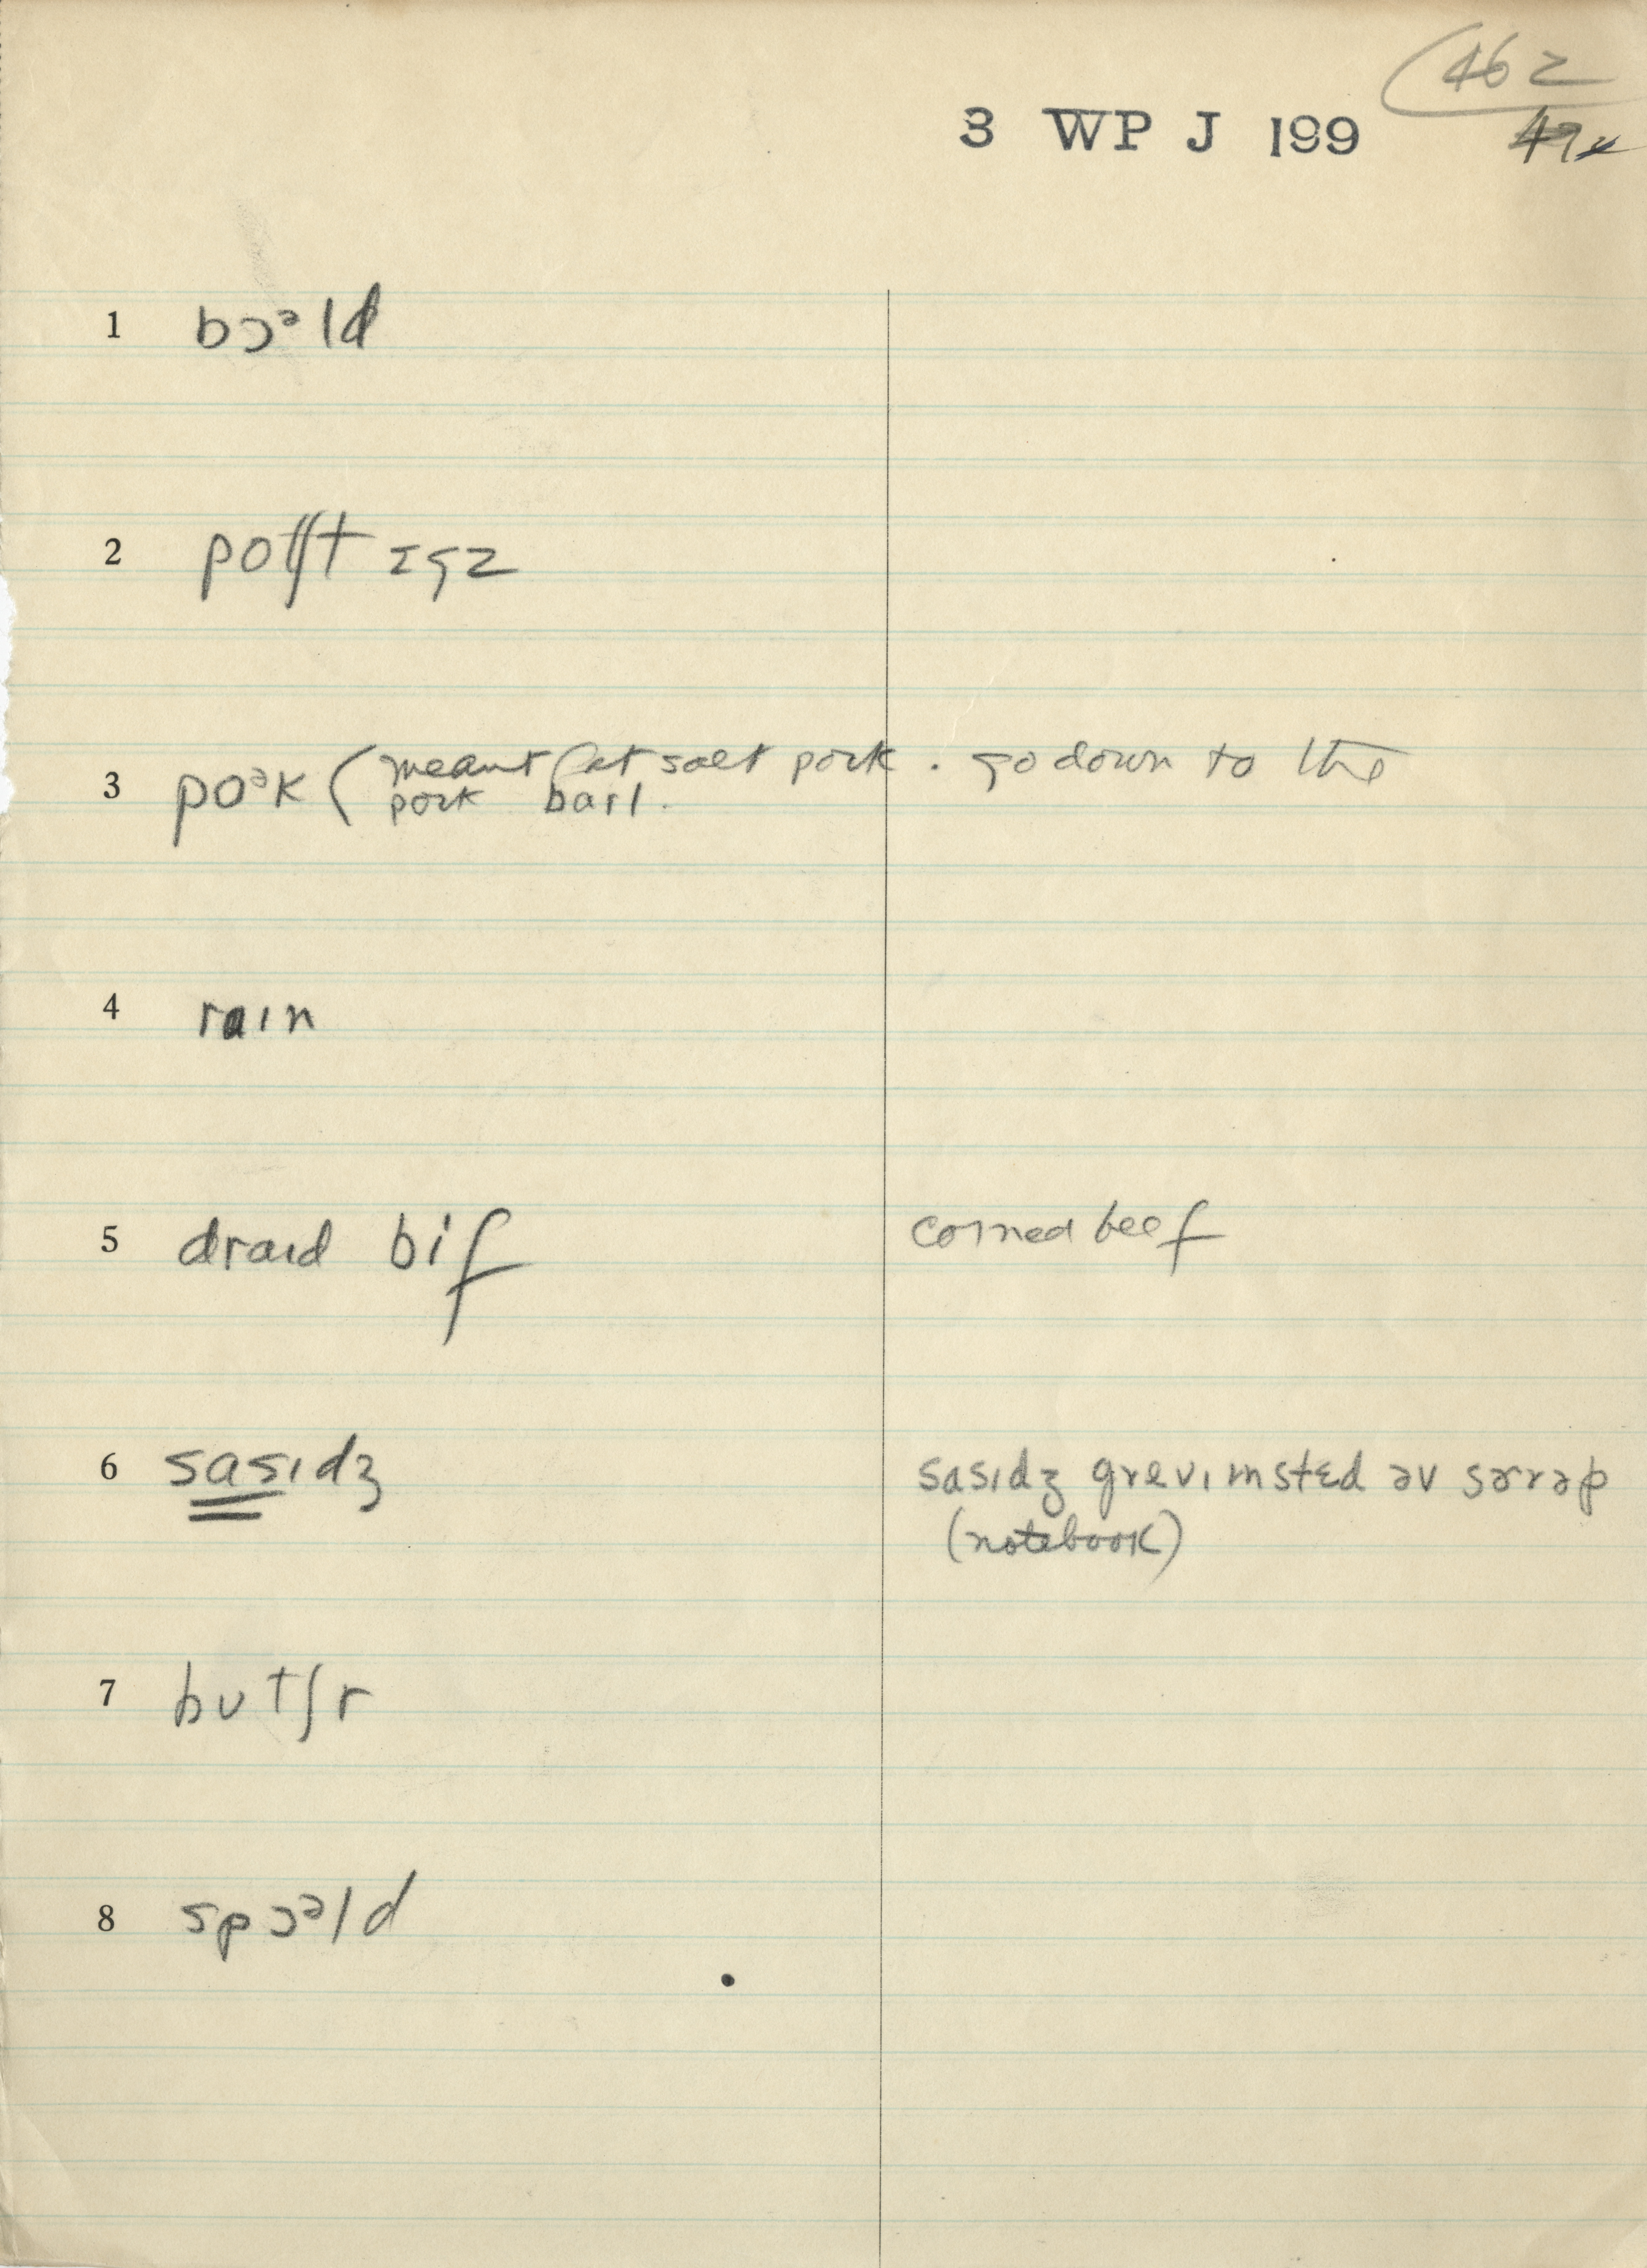 462
3 WP J 199
1 bɔᵊld
2 poʃt ɛgz
3 poᵊk (meant fat salt pork. go down to the
pork barl.
4 raɪn
5 draɪd bif corned beef
6 sasɪdʒ sasɪdʒ grevɪ ɪnstɛd əv sərəp
(notebook)
7 bʊtʃr
8 spɔᵊld